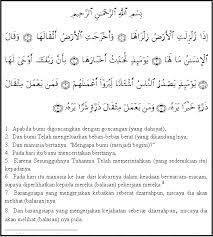 بِسْمِ اللَّهِ الرَّحْمَٰنِ الرَّحِيمِ
إِذَا زُلْزِلَتِ الْأَرْضُ زِلْزَالَهَا ۝ وَأَخْرَجَتِ الْأَرْضُ أَثْقَالَهَا ۝ وَقَالَ
الْإِنسَانُ مَا لَهَا ۝ يَوْمَئِذٍ تُحَدِّثُ أَخْبَارَهَا ۝ بِأَنَّ رَبَّكَ أَوْحَىٰ لَهَا ۝
يَوْمَئِذٍ يَصْدُرُ النَّاسُ أَشْتَاتًا لِّيُرَوْا أَعْمَالَهُمْ ۝ فَمَن يَعْمَلْ مِثْقَالَ
ذَرَّةٍ خَيْرًا يَرَهُ ۝ وَمَن يَعْمَلْ مِثْقَالَ ذَرَّةٍ شَرًّا يَرَهُ ۝
1. Apabila bumi digoncangkan dengan goncangan (yang dahsyat),
2. Dan bumi Telah mengeluarkan beban-beban berat (yang dikandung)nya,
3. Dan manusia bertanya: "Mengapa bumi (menjadi begini)?"
4. Pada hari itu bumi menceritakan beritanya,
5. Karena Sesungguhnya Tuhanmu Telah memerintahkan (yang sedemikian itu) kepadanya.
6. Pada hari itu manusia ke luar dari kuburnya dalam keadaan bermacam-macam,
supaya diperlihatkan kepada mereka (balasan) pekerjaan mereka
7. Barangsiapa yang mengerjakan kebaikan seberat dzarrahpun, niscaya dia akan
melihat (balasan)nya.
8. Dan barangsiapa yang mengerjakan kejahatan sebesar dzarrahpun, niscaya dia akan
melihat (balasan)nya pula.